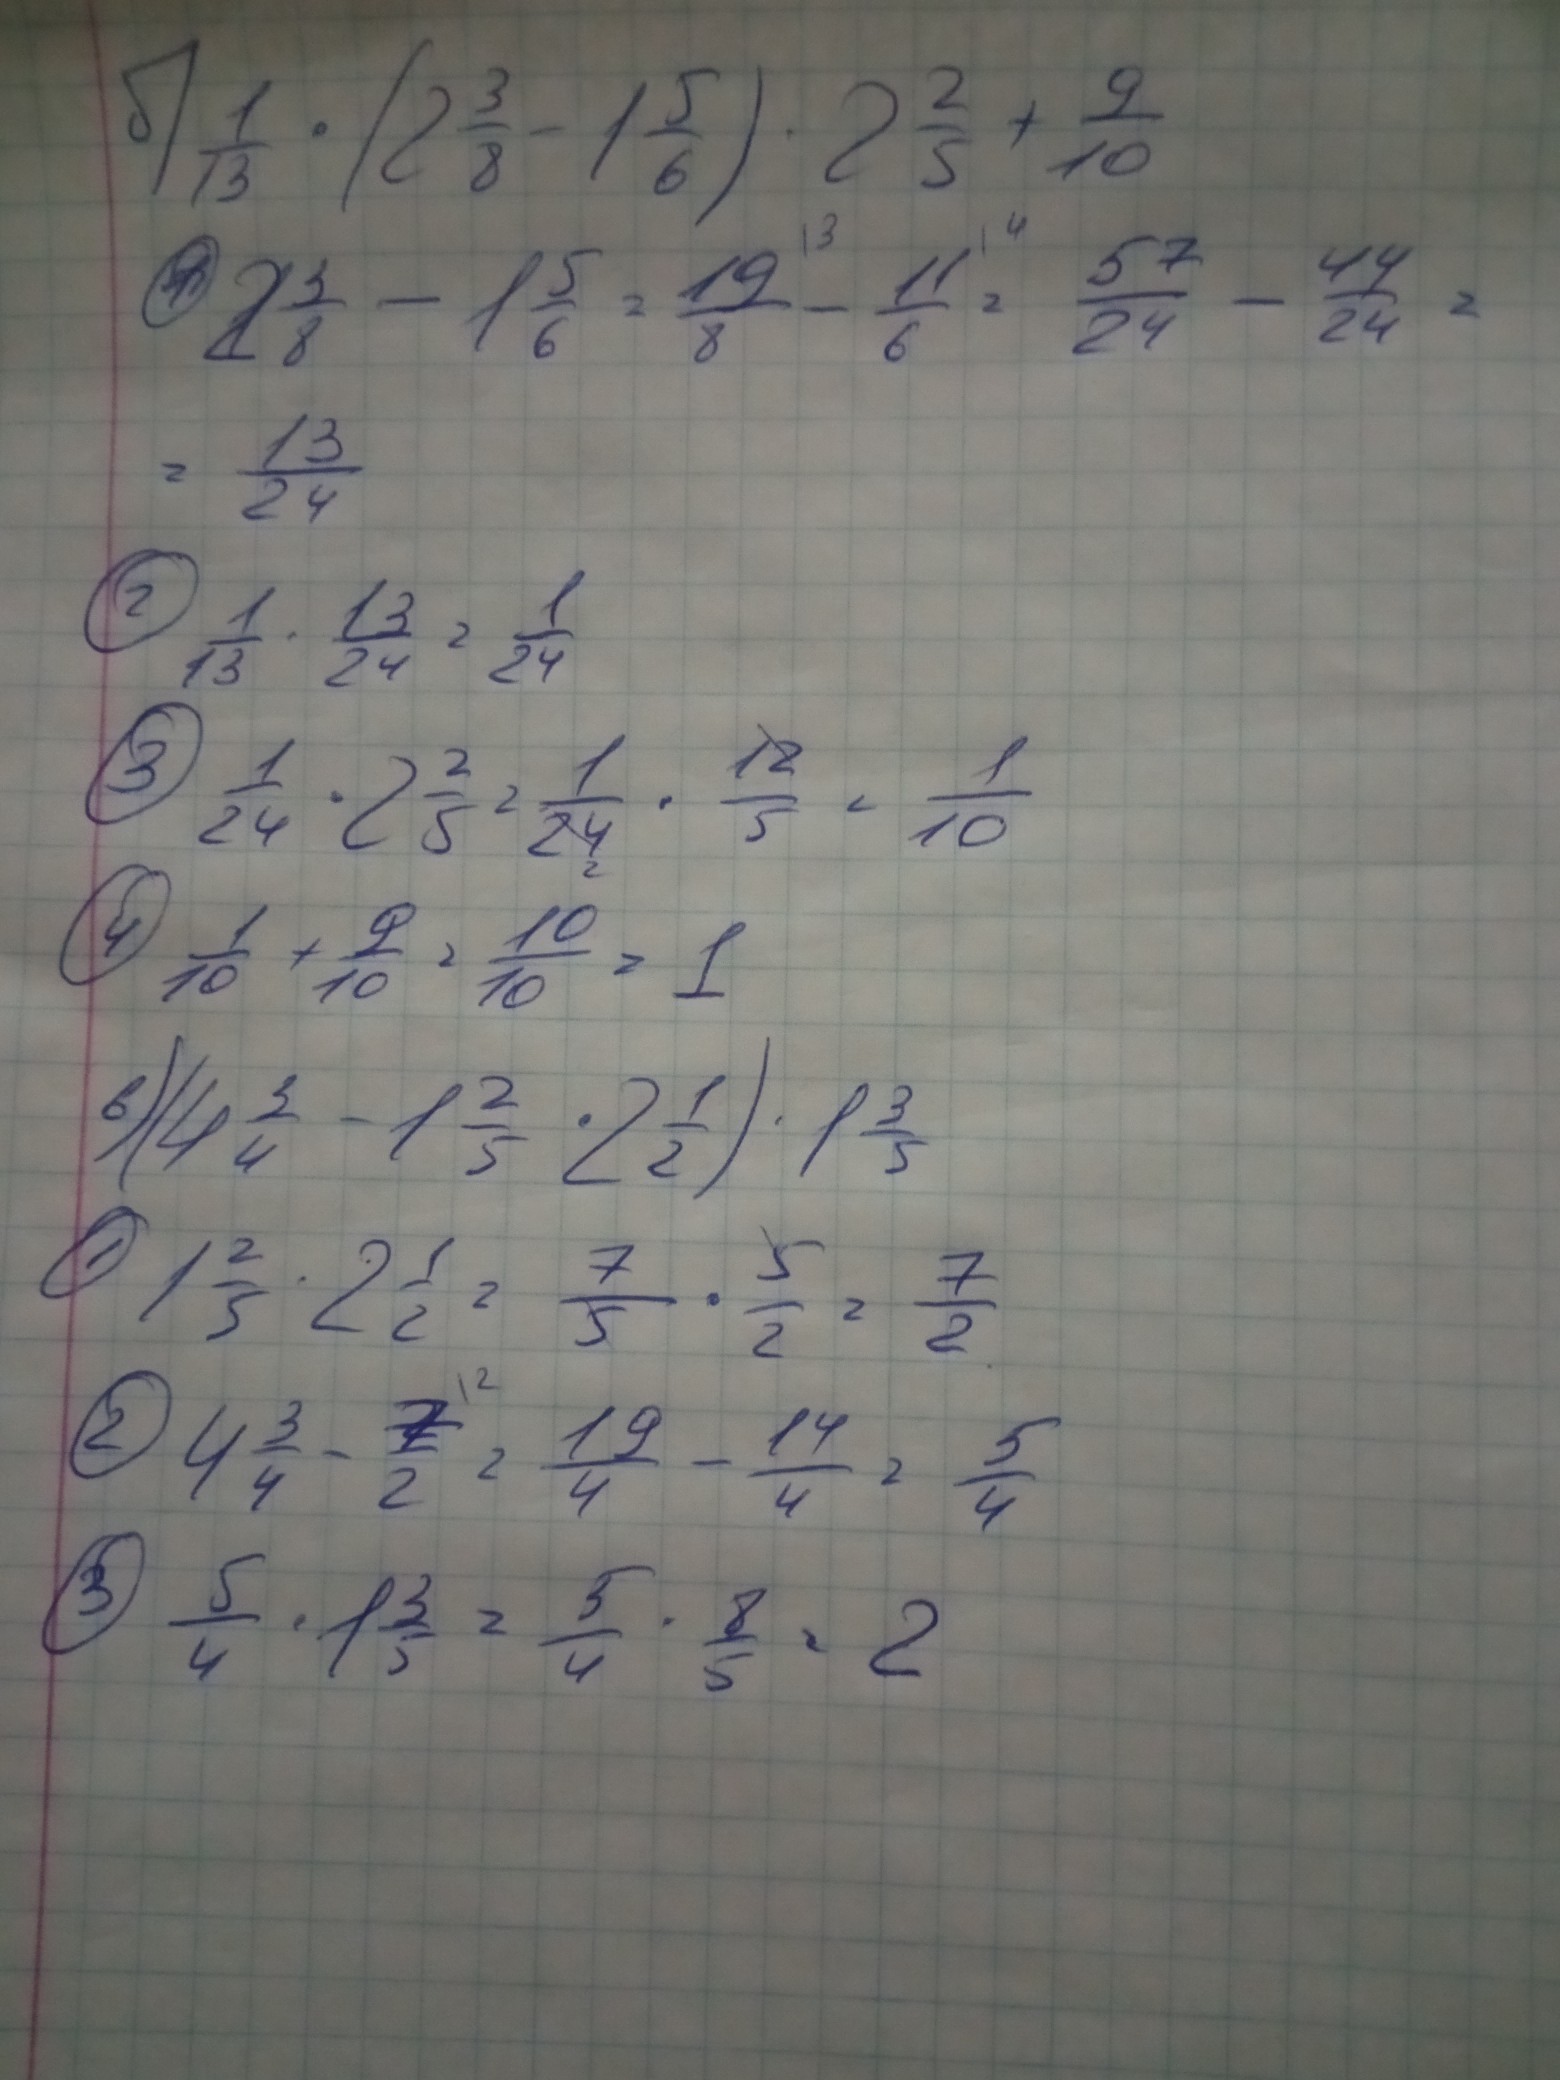 б) 1/13 · (2 3/8 - 1 5/6) · 2 2/5 + 9/10
① 2 3/8 - 1 5/6 = 19/8 |3 - 11/6 |4 = 57/24 - 44/24 =
= 13/24
② 1/13 · 13/24 = 1/24
③ 1/24 · 2 2/5 = 1/24 2 · 12/5 = 1/10
④ 1/10 + 9/10 = 10/10 = 1
в) (4 3/4 - 1 2/5 · 2 1/2) · 1 3/5
① 1 2/5 · 2 1/2 = 7/5 · 5/2 = 7/2
② 4 3/4 - 7/2 |2 = 19/4 - 14/4 = 5/4
③ 5/4 · 1 3/5 = 5/4 · 8/5 = 2